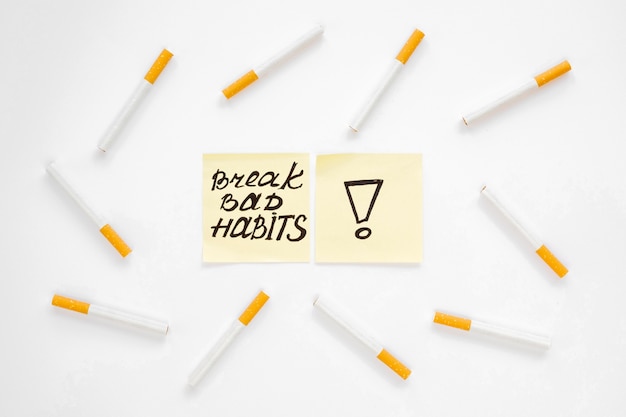 Break
BAD
HABITS
!